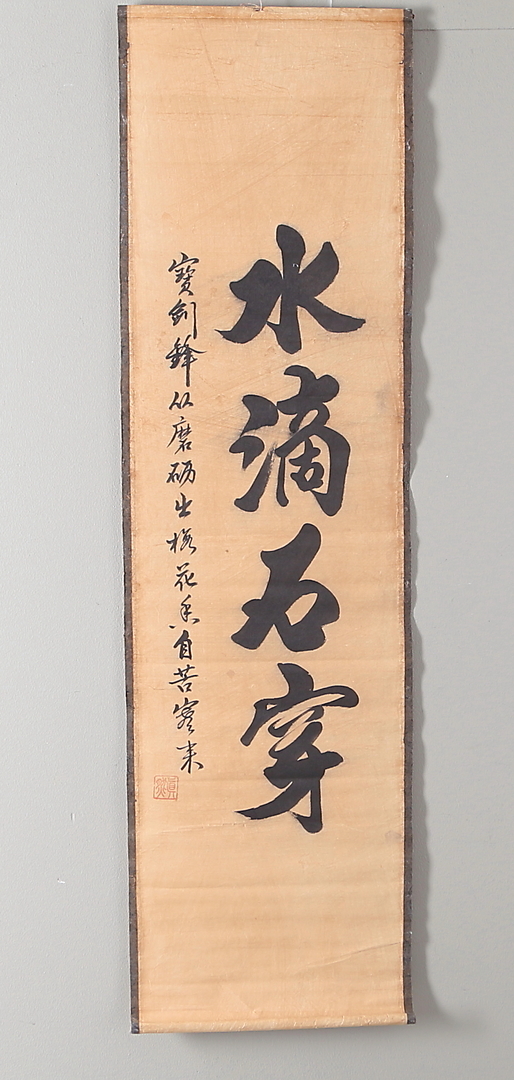 水滴石穿
寶剑鋒从磨砺出梅花香自苦寒来